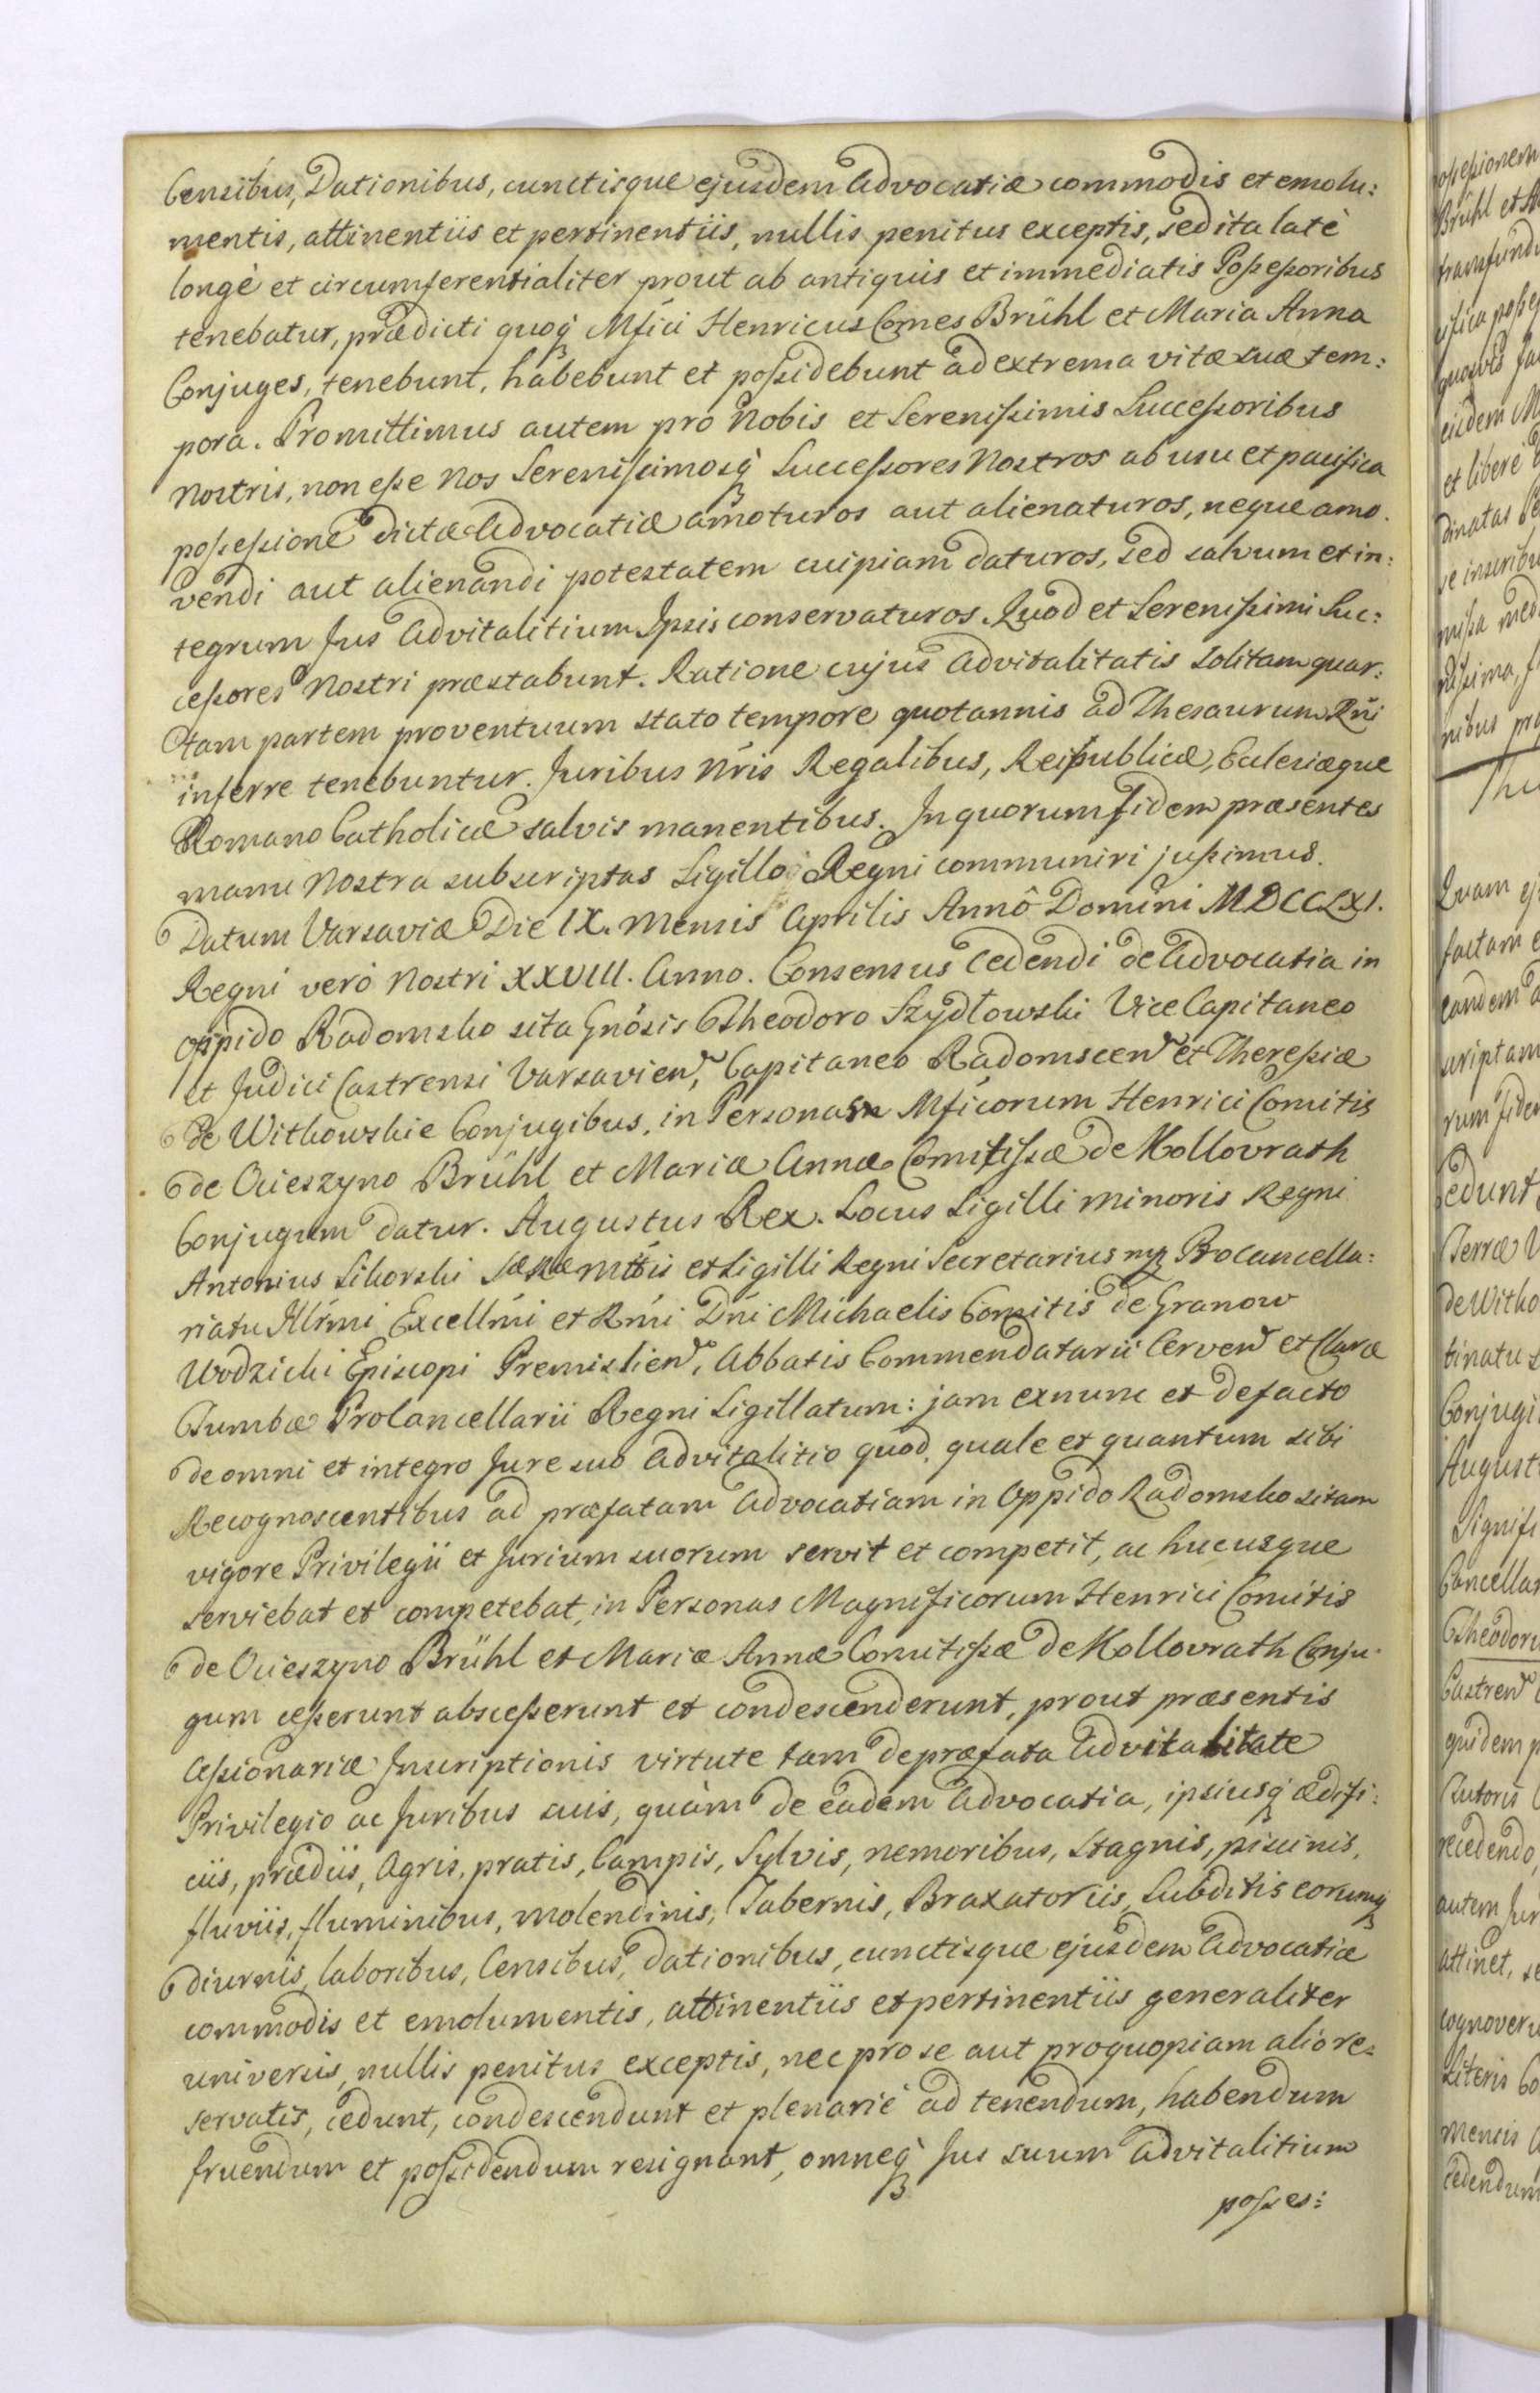 Censibus, Dationibus, cunctisque ejusdem Advocatiæ commodis et emolu:
mentis, attinentiis et pertinentiis, nullis penitus exceptis, sed ita latè
longè et circumferentialiter prout ab antiquis et immediatis Possessoribus
tenebatur, prædicti quoq̀ Mfici Henricus Comes Brühl et Maria Anna
Conjuges, tenebunt, habebunt et possidebunt ad extrema vitæ suæ tem:
pora. Promittimus autem pro Nobis et Serenissimis Successoribus
Nostris, non esse Nos Serenissimosq̀ Successores Nostros ab usu et pacifica
possessione dictæ Advocatiæ amoturos aut alienaturos, neque amo.
vendi aut alienandi potestatem cuipiam daturos, sed salvum et in:
tegrum Jus Advitalitium Ipsis conservaturos. Quod et Serenissimi Suc:
cessores Nostri præstabunt. Ratione cujus Advitalitatis solitam quar:
tam partem proventuum stato tempore quotannis ad Thesaurum Rñi
inferre tenebuntur. Juribus Nris Regalibus, Reipublicæ, Eclesiæque
Romano Catholicæ salvis manentibus. In quorum fidem præsentes
manu Nostra subscriptas Sigillo Regni communiri jussimus.
Datum Varsaviæ Die IX. Mensis Aprilis Annô Domini MDCCLXI.
Regni vero Nostri XXVIII. Anno. Consensus Cedendi de Advocatia in
oppido Radomsko sita Gnósis Theodoro Szydłowski Vice Capitaneo
et Judici Castrensi Varsavien, Capitaneo Radomscen et Theresiæ
de Witkowskie Conjugibus, in Personam Mficorum Henrici Comitis
de Ocieszyno Brühl et Mariæ Annæ Comitissæ de Kollovrath
Conjugum datur. Augustus Rex. Locus Sigilli minoris Regni
Antonius Sikorski SæRæMttis et Sigilli Regni Secretarius mp Procancella:
riatu Illrmi Excellmi et Rmi Dni Michaelis Comitis de Granow
Wodzicki Episcopi Premislien, Abbatis Commendatarii Cerven et Claræ
Tumbæ Procancellarii Regni Sigillatum: jam exnunc et defacto
de omni et integro Jure suo Advitalitio quod, quale et quantum sibi
Recognoscentibus ad præfatam Advocatiam in Oppido Radomsko sitam
vigore Privilegii et Jurium suorum servit et competit, ac hucusque
serviebat et competebat, in Personas Magnificorum Henrici Comitis
de Ocieszyno Brühl et Mariæ Annæ Comitissæ de Kollovrath Conju.
gum cesserunt abscesserunt et condescenderunt, prout præsentis
Cessionariæ Inscriptionis virtute tam de præfata Advitalitate
Privilegio ac Juribus suis, quàm de eadem Advocatia, ipsiusq̀ ædifi:
ciis, prædiis, Agris, pratis, Campis, Sylvis, nemoribus, Stagnis, piscinis,
fluviis, fluminibus, molendinis, Tabernis, Braxatoriis, Subditis eorumq̀
diurnis, laboribus, Censibus, dationibus, cunctisque ejusdem Advocatiæ
commodis et emolumentis, attinentiis et pertinentiis generaliter
universis, nullis penitus exceptis, nec pro se aut pro quopiam alio re:
servatis, cedunt, condescendunt et plenariè ad tenendum, habendum
fruendum et possidendum resignant, omneq̀ Jus suum advitalitium
posses: